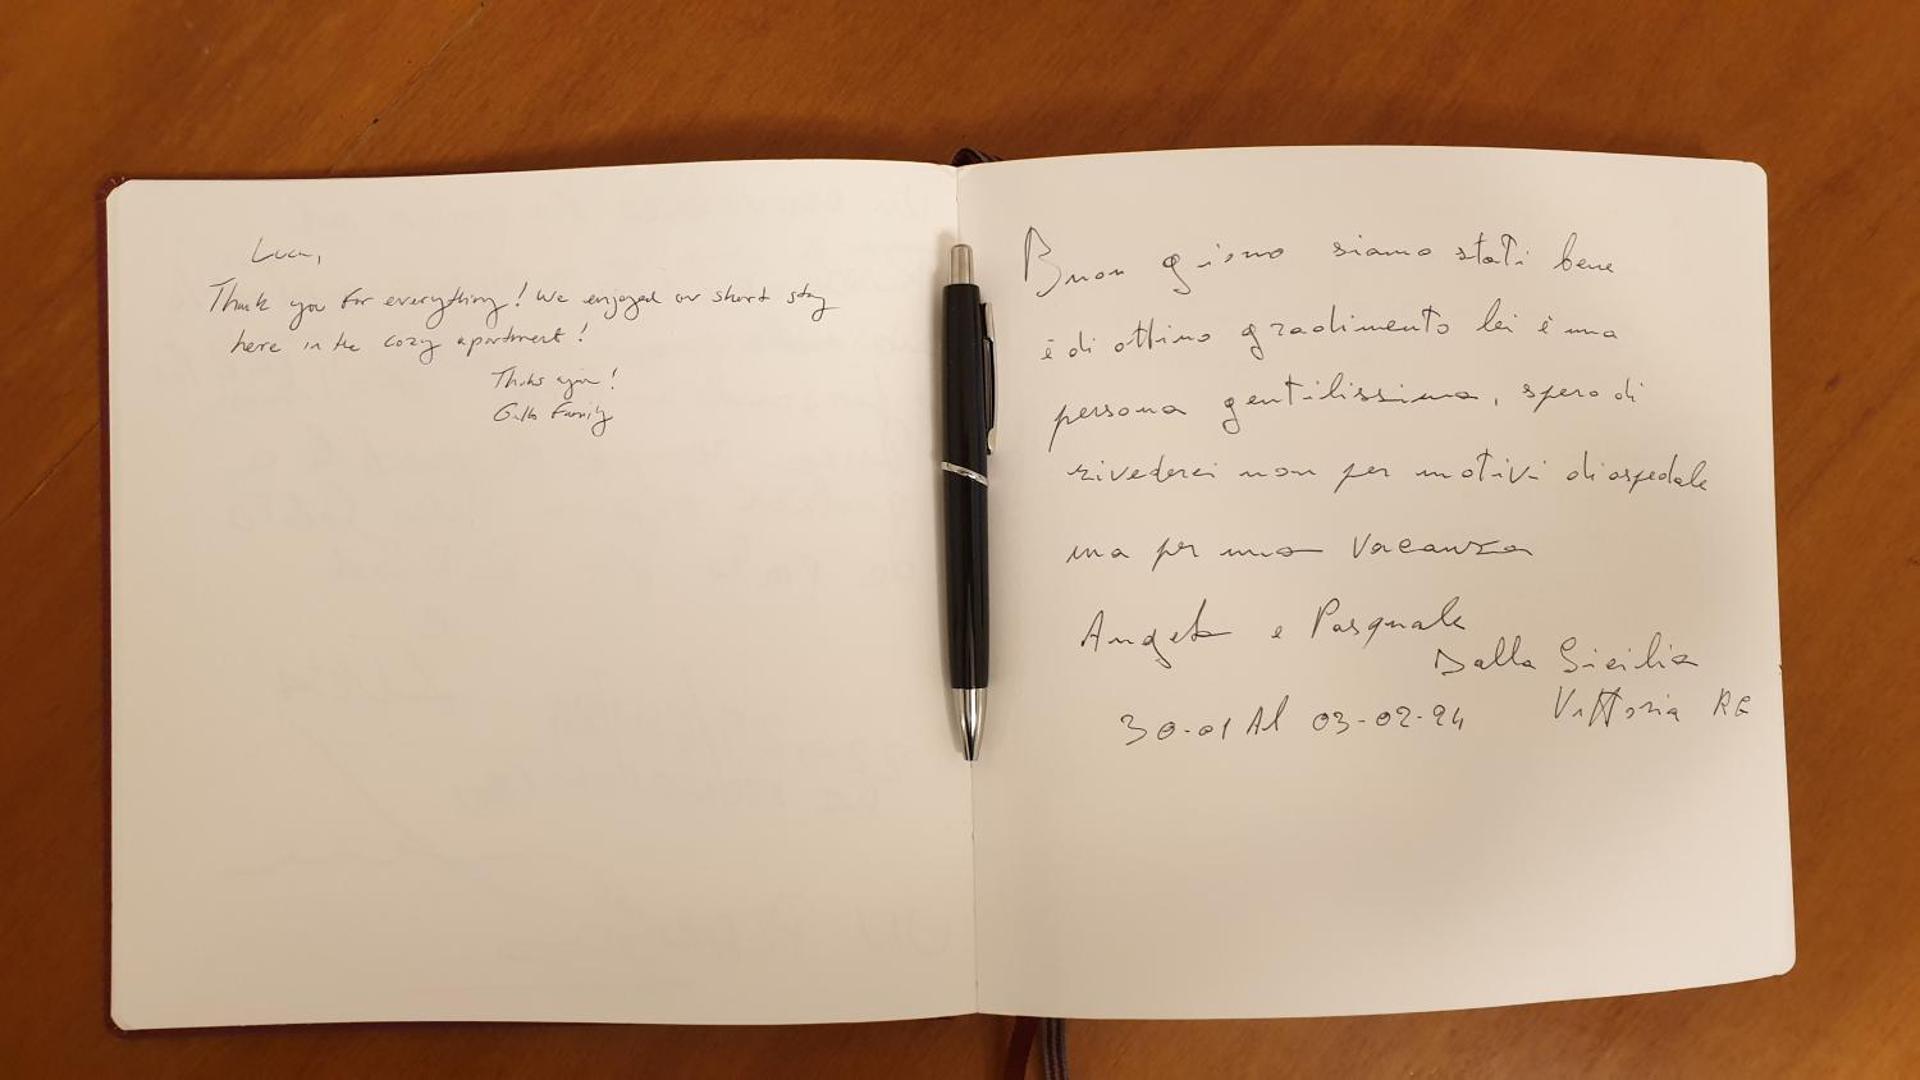 Luca,
Thank you for everything! We enjoyed our short stay
here in the cozy apartment!
Thanks again!
Family
Buon giorno siamo stati bene
è di ottimo gradimento lei è una
persona gentilissima, spero di
rivederci non per motivi di ospedale
ma per una vacanza
Angela e Pasquale
Dalla Sicilia
Vittoria RG
30-01 Al 03-02-24